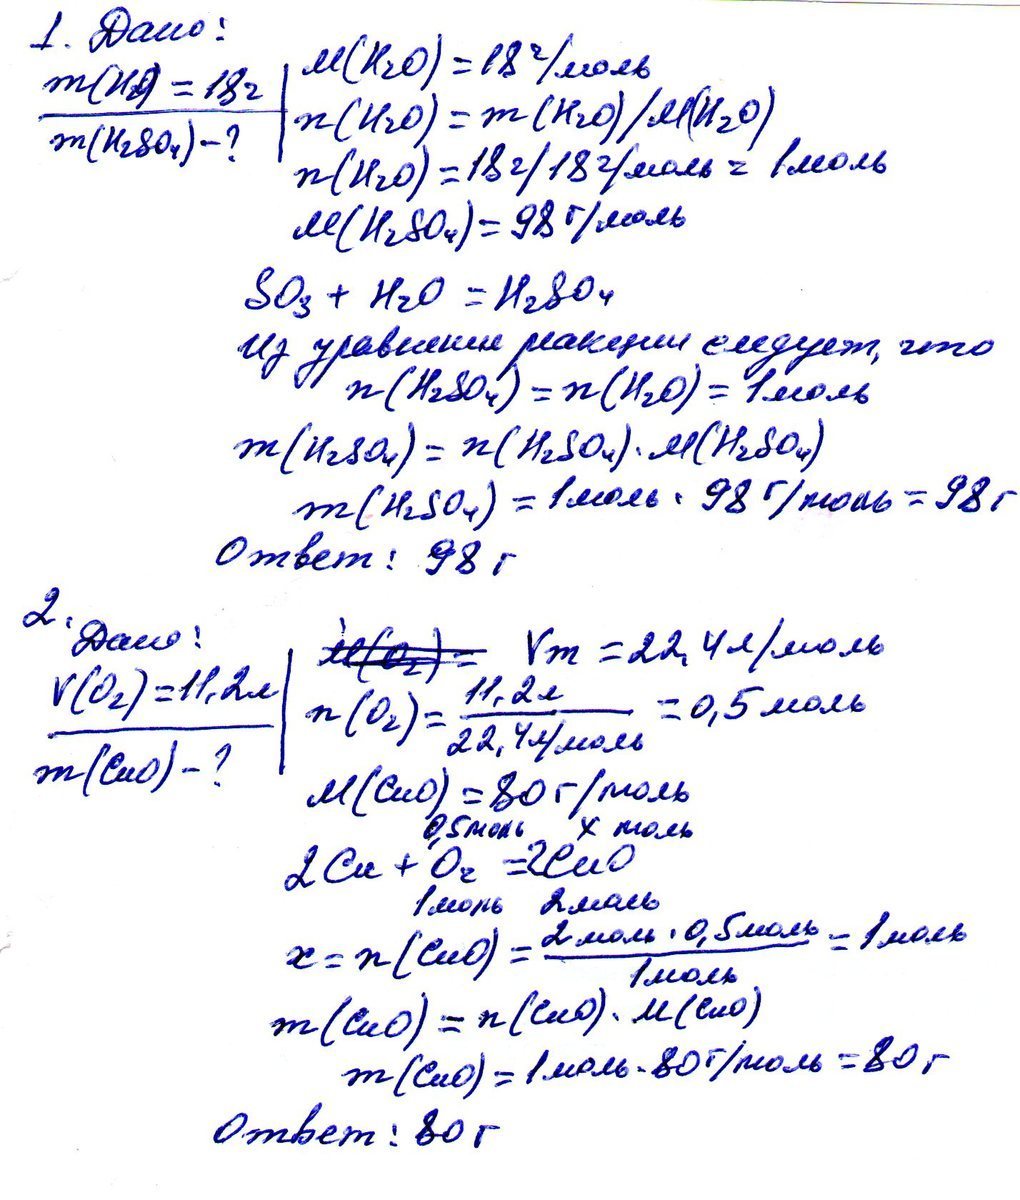 1. Дано:
m(H2O) = 18г
m(H2SO4) - ?
M(H2O) = 18 г/моль
n(H2O) = m(H2O)/M(H2O)
n(H2O) = 18г/18г/моль = 1моль
M(H2SO4) = 98 г/моль
SO3 + H2O = H2SO4
Из уравнения реакции следует, что
n(H2SO4) = n(H2O) = 1моль
m(H2SO4) = n(H2SO4)·M(H2SO4)
m(H2SO4) = 1моль · 98 г/моль = 98 г
Ответ: 98 г
2.
Дано:
V(O2) = 11,2л
m(CuO) - ?
M(O2) = Vm = 22,4л/моль
n(O2) = 11,2л / 22,4л/моль = 0,5 моль
M(CuO) = 80 г/моль
0,5моль x моль
2Cu + O2 = 2CuO
1моль 2моль
x = n(CuO) = 2моль·0,5моль / 1моль = 1моль
m(CuO) = n(CuO)·M(CuO)
m(CuO) = 1моль·80г/моль = 80 г
Ответ: 80 г